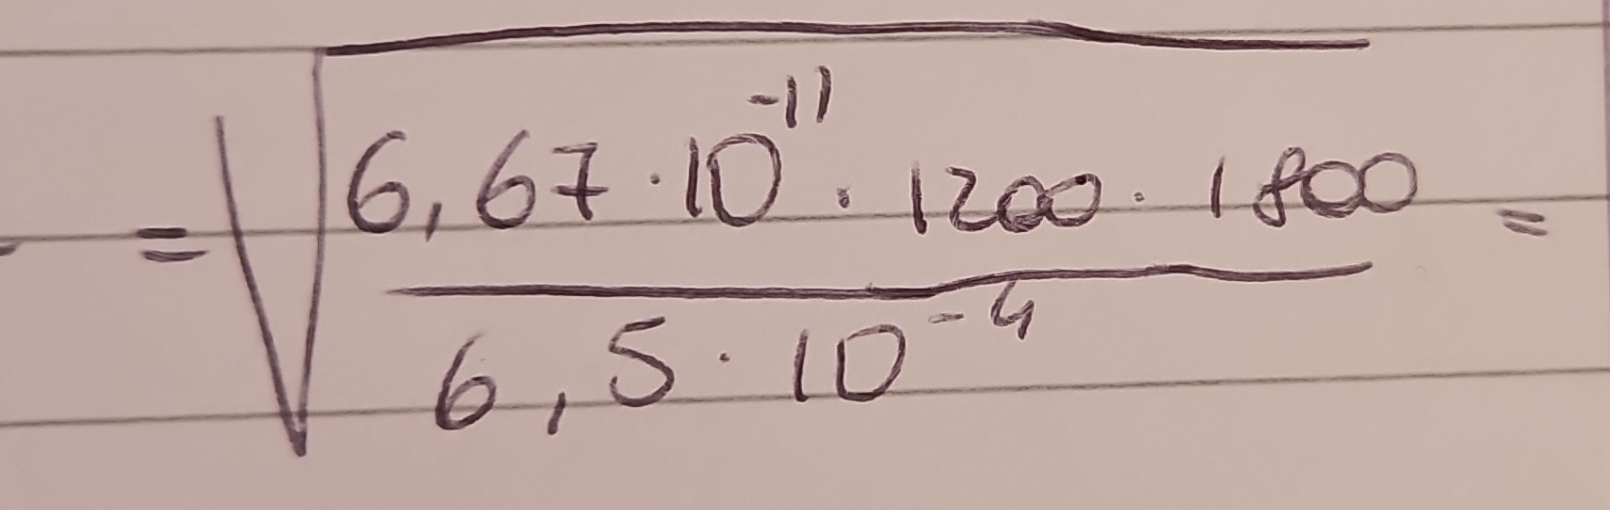 = √(6,67 · 10⁻¹¹ · 1200 · 1800 / 6,5 · 10⁻⁴) =